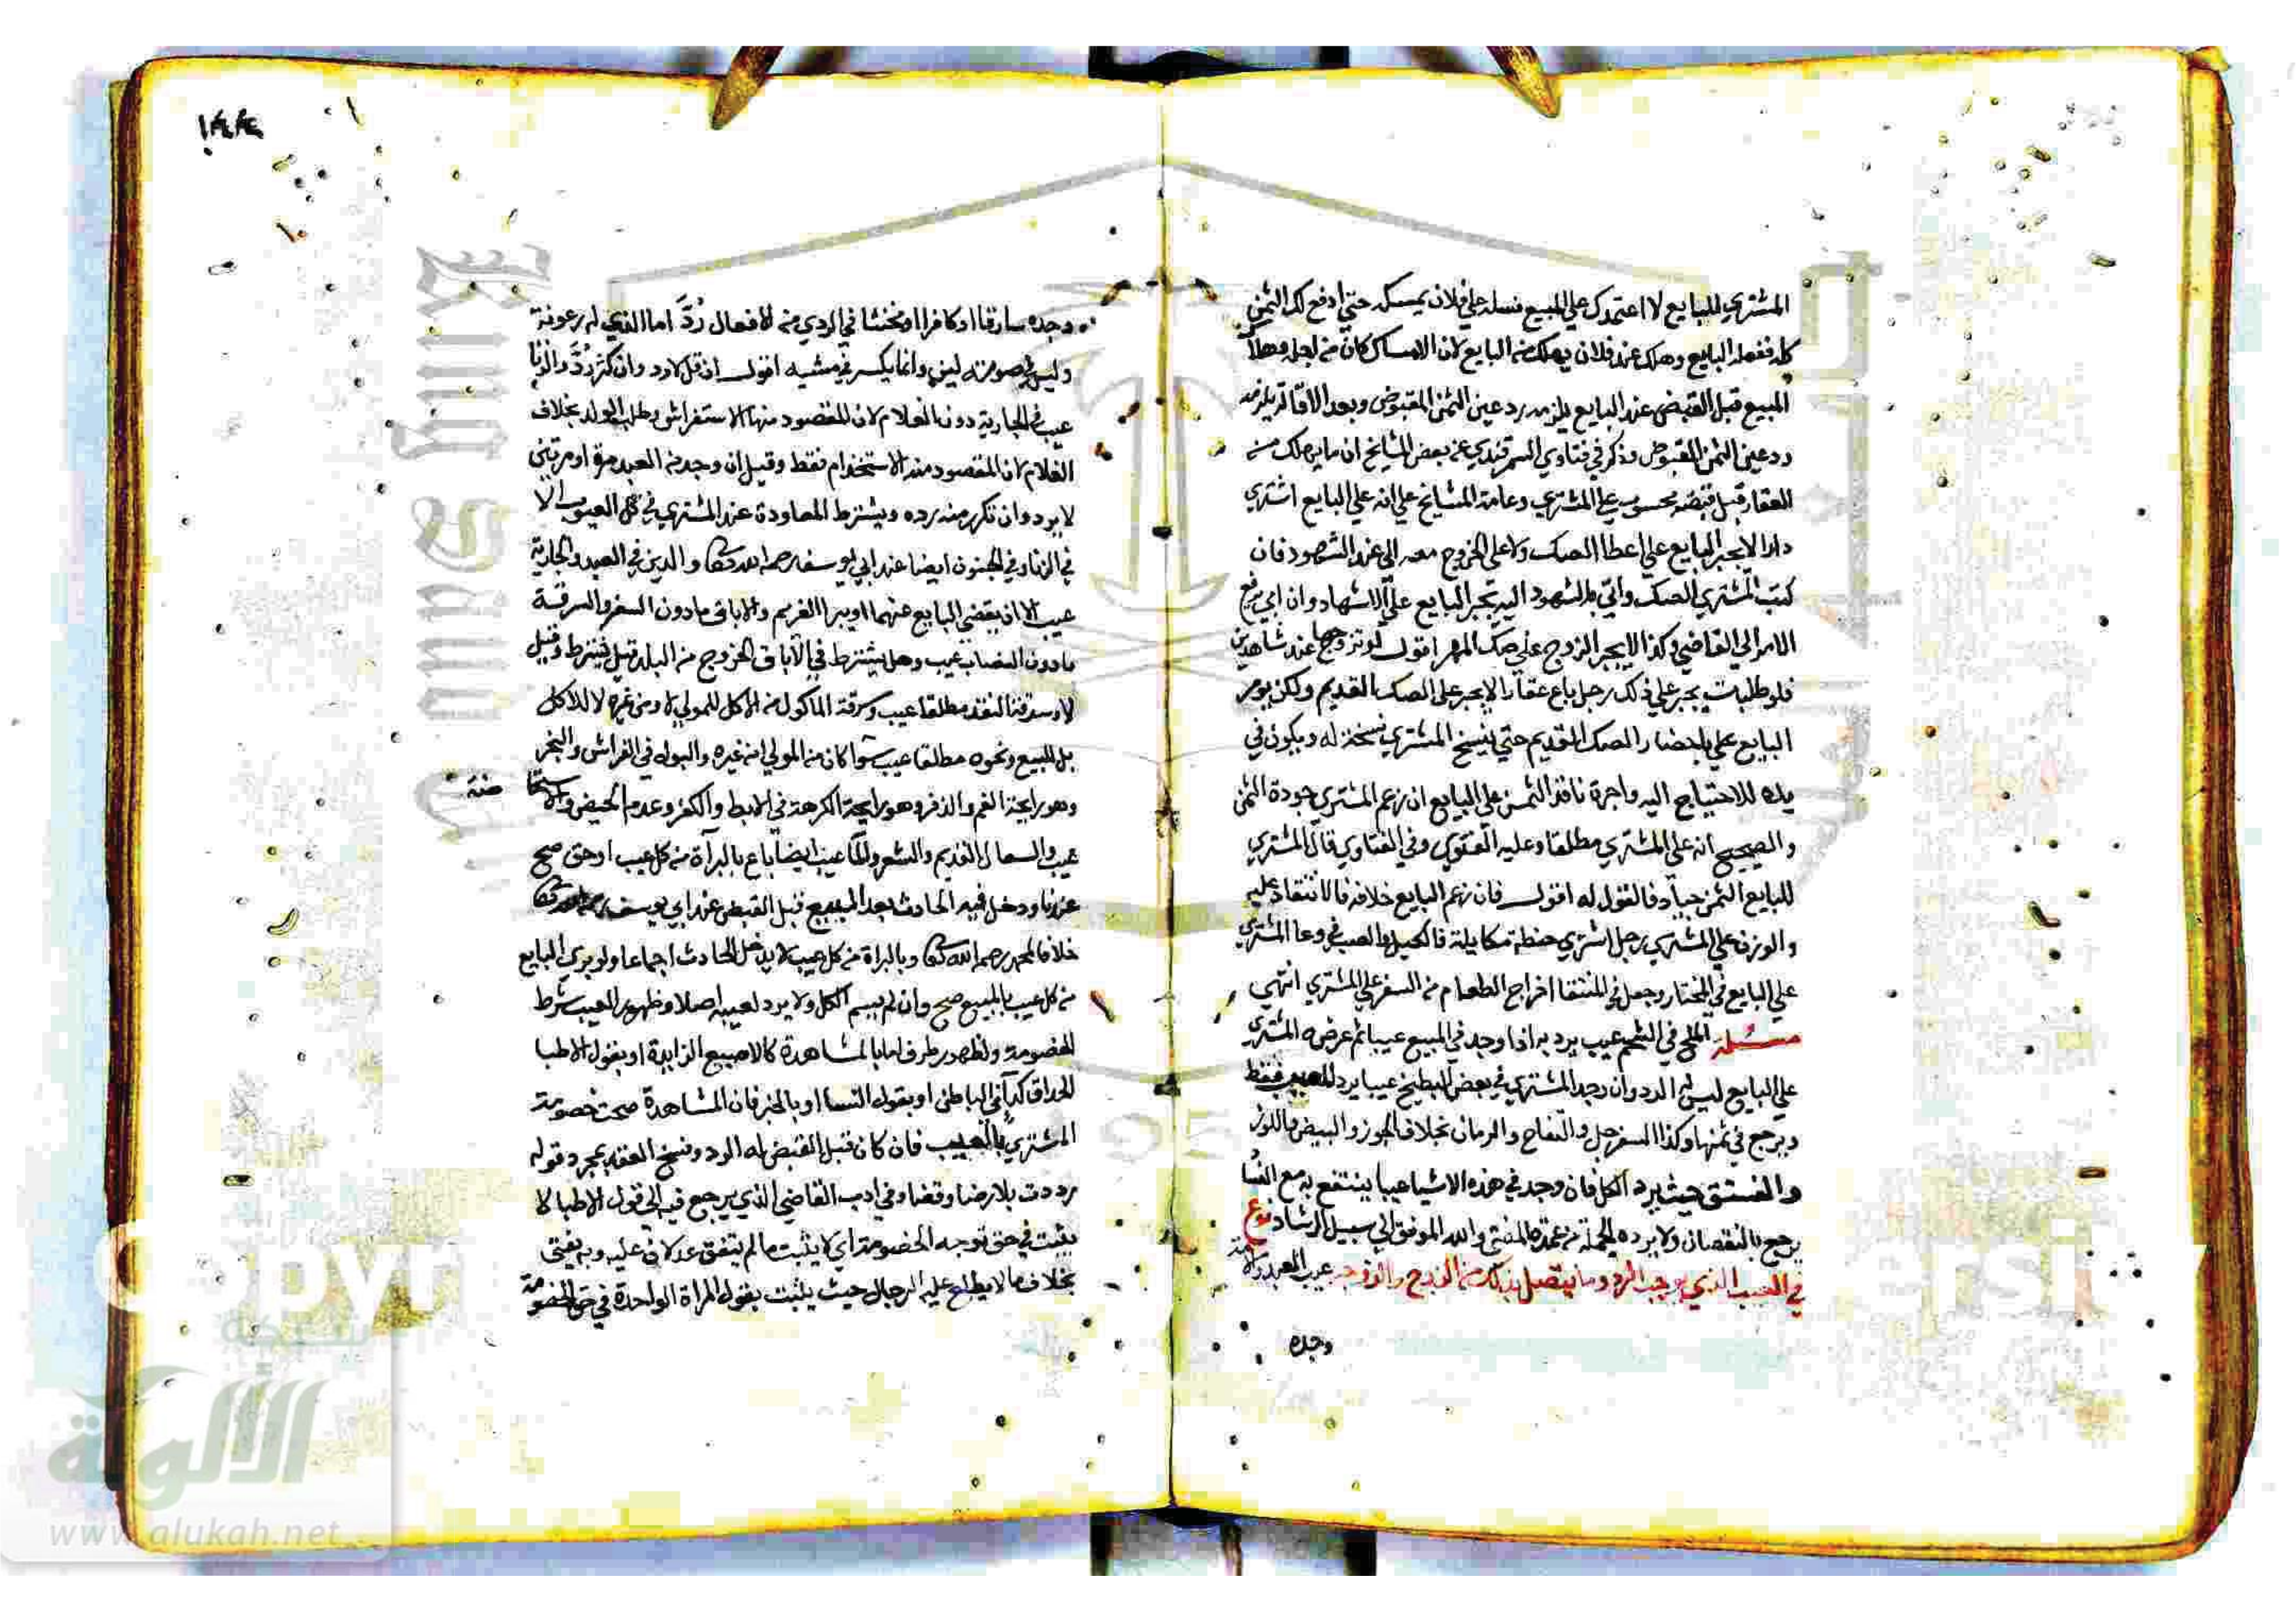 المشتري للبايع لا اعتمدك علي المبيع فسلمه علي فلان يمسكه حتي ادفع لك الثمن
كله ففعله البايع وهلك عند فلان يهلك من البايع لان الامساك كان من اجله وهلاك
المبيع قبل القبض عند البايع يلزمه رد عين الثمن المقبوض وبعد الاقالة يلزمه
رد عين الثمن المقبوض وذكر في فتاوي السمرقندي عن بعض المشايخ ان ما يهلك من
العقار قبل قبضه محسوب علي المشتري وعامة المشايخ علي انه علي البايع اشتري
دارا لا يجبر البايع علي اعطا الصك ولا علي الخروج معه الي عند الشهود فان
كتب المشتري الصك واتي بالشهود اليه يجبر البايع علي الاشهاد وان ابي يرفع
الامر الي القاضي وكذا لا يجبر الزوج علي صك المهر اقول لو تزوجها عند شاهدين
فلو طلبت يجبر علي ذلك رجل باع عقارا لا يجبر علي الصك القديم ولكن يومر
البايع علي باحضار الصك القديم حتي ينسخ المشتري نسخة له ويكون في
يده للاحتياج اليه واجرة ناقد الثمن علي البايع ان زعم المشتري جودة الثمن
والصحيح انه علي المشتري مطلقا وعليه الفتوي وفي الفتاوي قال المشتري
للبايع الثمن جياد فالقول له اقول فان زعم البايع خلافه فالانتقاد عليه
والوزن علي المشتري رجل اشتري حنطة مكايلة فالكيل والصب في وعا المشتري
علي البايع في المختار وجعل في المنتقا اخراج الطعام من السفن علي المشتري انتهي
مسئلة الملح في الشحم عيب يرد به اذا وجد في المبيع عيبا ثم عرضه المشتري
علي البايع ليس له الرد وان وجد المشتري في بعض البطيخ عيبا يرد المعيب فقط
ويرجع في ثمنها وكذا السفرجل والتفاح والرمان بخلاف الجوز والبيض واللوز
والفستق حيث يرد الكل فان وجد في هذه الاشيا عيبا ينتفع به مع القثا
يرجع بالنقصان ولا يرده الجملة من عمدة المفتي والله الموفق الي سبيل الرشاد نوع
في العيب الذي يوجب الرد وما يتصل بذلك من الزوج والزوجة عيب العبد والامة
وجده
١٤٤
وجده سارقا او كافرا او مخنثا في الردي من الافعال رد اما الذي له رعونة
وليس في صوته لين وانما يكسر في مشيه اقول ان قل لا رد وان كثر رد والزنا
عيب في الجارية دون الغلام لان المقصود منها الاستفراش وطلب الولد بخلاف
الغلام لان المقصود منه الاستخدام فقط وقيل ان وجد من العبد مرة او مرتين
لا يرد وان تكرر منه رده ويشترط المعاودة عند المشتري في كل العيوب الا
في الزنا وفي الجنون ايضا عند ابي يوسف رحمه الله تعالي والدين في العبد والجارية
عيب الا ان يقضي البايع عنهما او يبرا الغريم والاباق مادون السفر والسرقة
مادون النصاب عيب وهل يشترط في الاباق الخروج من البلد قيل يشترط وقيل
لا وسرقة النقد مطلقا عيب وسرقة الماكول من الاكل للمولي لا ومن غيره لا للاكل
بل للبيع ونحوه مطلقا عيب سوا كان من المولي او من غيره والبول في الفراش والبخر
وهو رايحة الفم والذفر وهو رايحة الكرهة في الابط والكفر وعدم الحيض والاستحا
ضة
عيب والسعال القديم والشعر والما عيب ايضا باع بالبرآة من كل عيب او حق صح
عندنا ودخل فيه الحادث بعد المبيع قبل القبض عند ابي يوسف رحمه الله تعالي
خلافا لمحمد رحمه الله تعالي وبالبراة من كل عيب لا يدخل الحادث اجماعا ولو بري البايع
من كل عيب بالمبيع صح وان لم يسم الكل ولا يرد لعيبه اصلا وظهور العيب شرط
للخصومة ولظهور طرف اما بالمشاهدة كالاصبع الزايدة او بقول الاطبا
الحداق كدآء في الباطن او بقول النسا او بالخبر فان المشاهدة صحت خصومة
المشتري بالعيب فان كان قبل القبض له الرد وفسخ العقد بمجرد قوله
رددت بلا رضا وقضا وفي ادب القاضي الذي يرجع فيه الي قول الاطبا لا
يثبت في حق توجه الخصومة اي لا يثبت ما لم يتفق عدلان عليه وبه يفتي
بخلاف ما لا يطلع عليه الرجال حيث يثبت بقول المراة الواحدة في حق الخصومة
شبكة
الألوكة
www.alukah.net